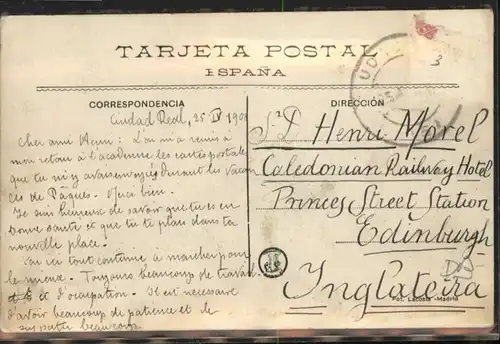 TARJETA POSTAL
ESPAÑA
CORRESPONDENCIA
DIRECCIÓN
3
Ciudad Real, 25 IV 190
Cher ami Henri: L'on m'a remis à
mon retour à l'academie les cartes postales
que tu m'y avais envoyées durant les vacan
ces de Pâques. Merci bien.
Je suis heureuse de savoir que tu es en
bonne santé et que tu te plais dans ta
nouvelle place.
Par ici tout continue à marcher pour
le mieux. Toujours beaucoup de travail
et d'ocupation. Il est necessaire
d'avoir beaucoup de patience et de
beaucoup.
Sr D Henri Morel
Caledonian Railway Hotel
Princes Street Station
Edinburgh
Inglaterra
Fot. Lacoste -Madrid